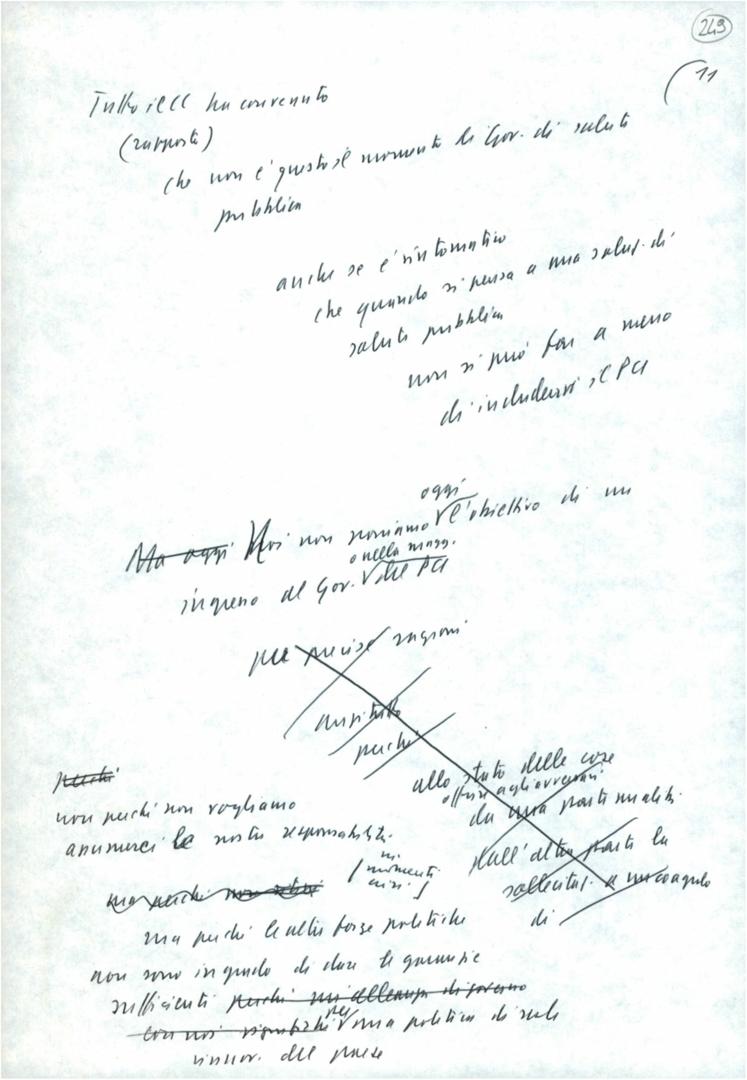 249
11
Tutto il CC ha convenuto
(rapporti)
che non è questo il momento di Gov. di salute
pubblica
anche se è sintomatico
che quando si pensa a una soluz. di
salute pubblica
non si può fare a meno
di includervi il PCI
oggi
Ma oggi Noi non poniamo l'obiettivo di un
o nella magg.
ingresso al Gov. del PCI
per precise ragioni
anzitutto
perché
allo stato delle cose
perché
da una parte
non perché non vogliamo
assumerci le nostre responsabilità
dall'altra parte la
momenti
crisi
sollecitaz. a un coagulo
ma perché
di
ma perché le altre forze politiche
non sono in grado di dare le garanzie
sufficienti perché un'alleanza di governo
per
con noi una politica di
rinnov. del paese